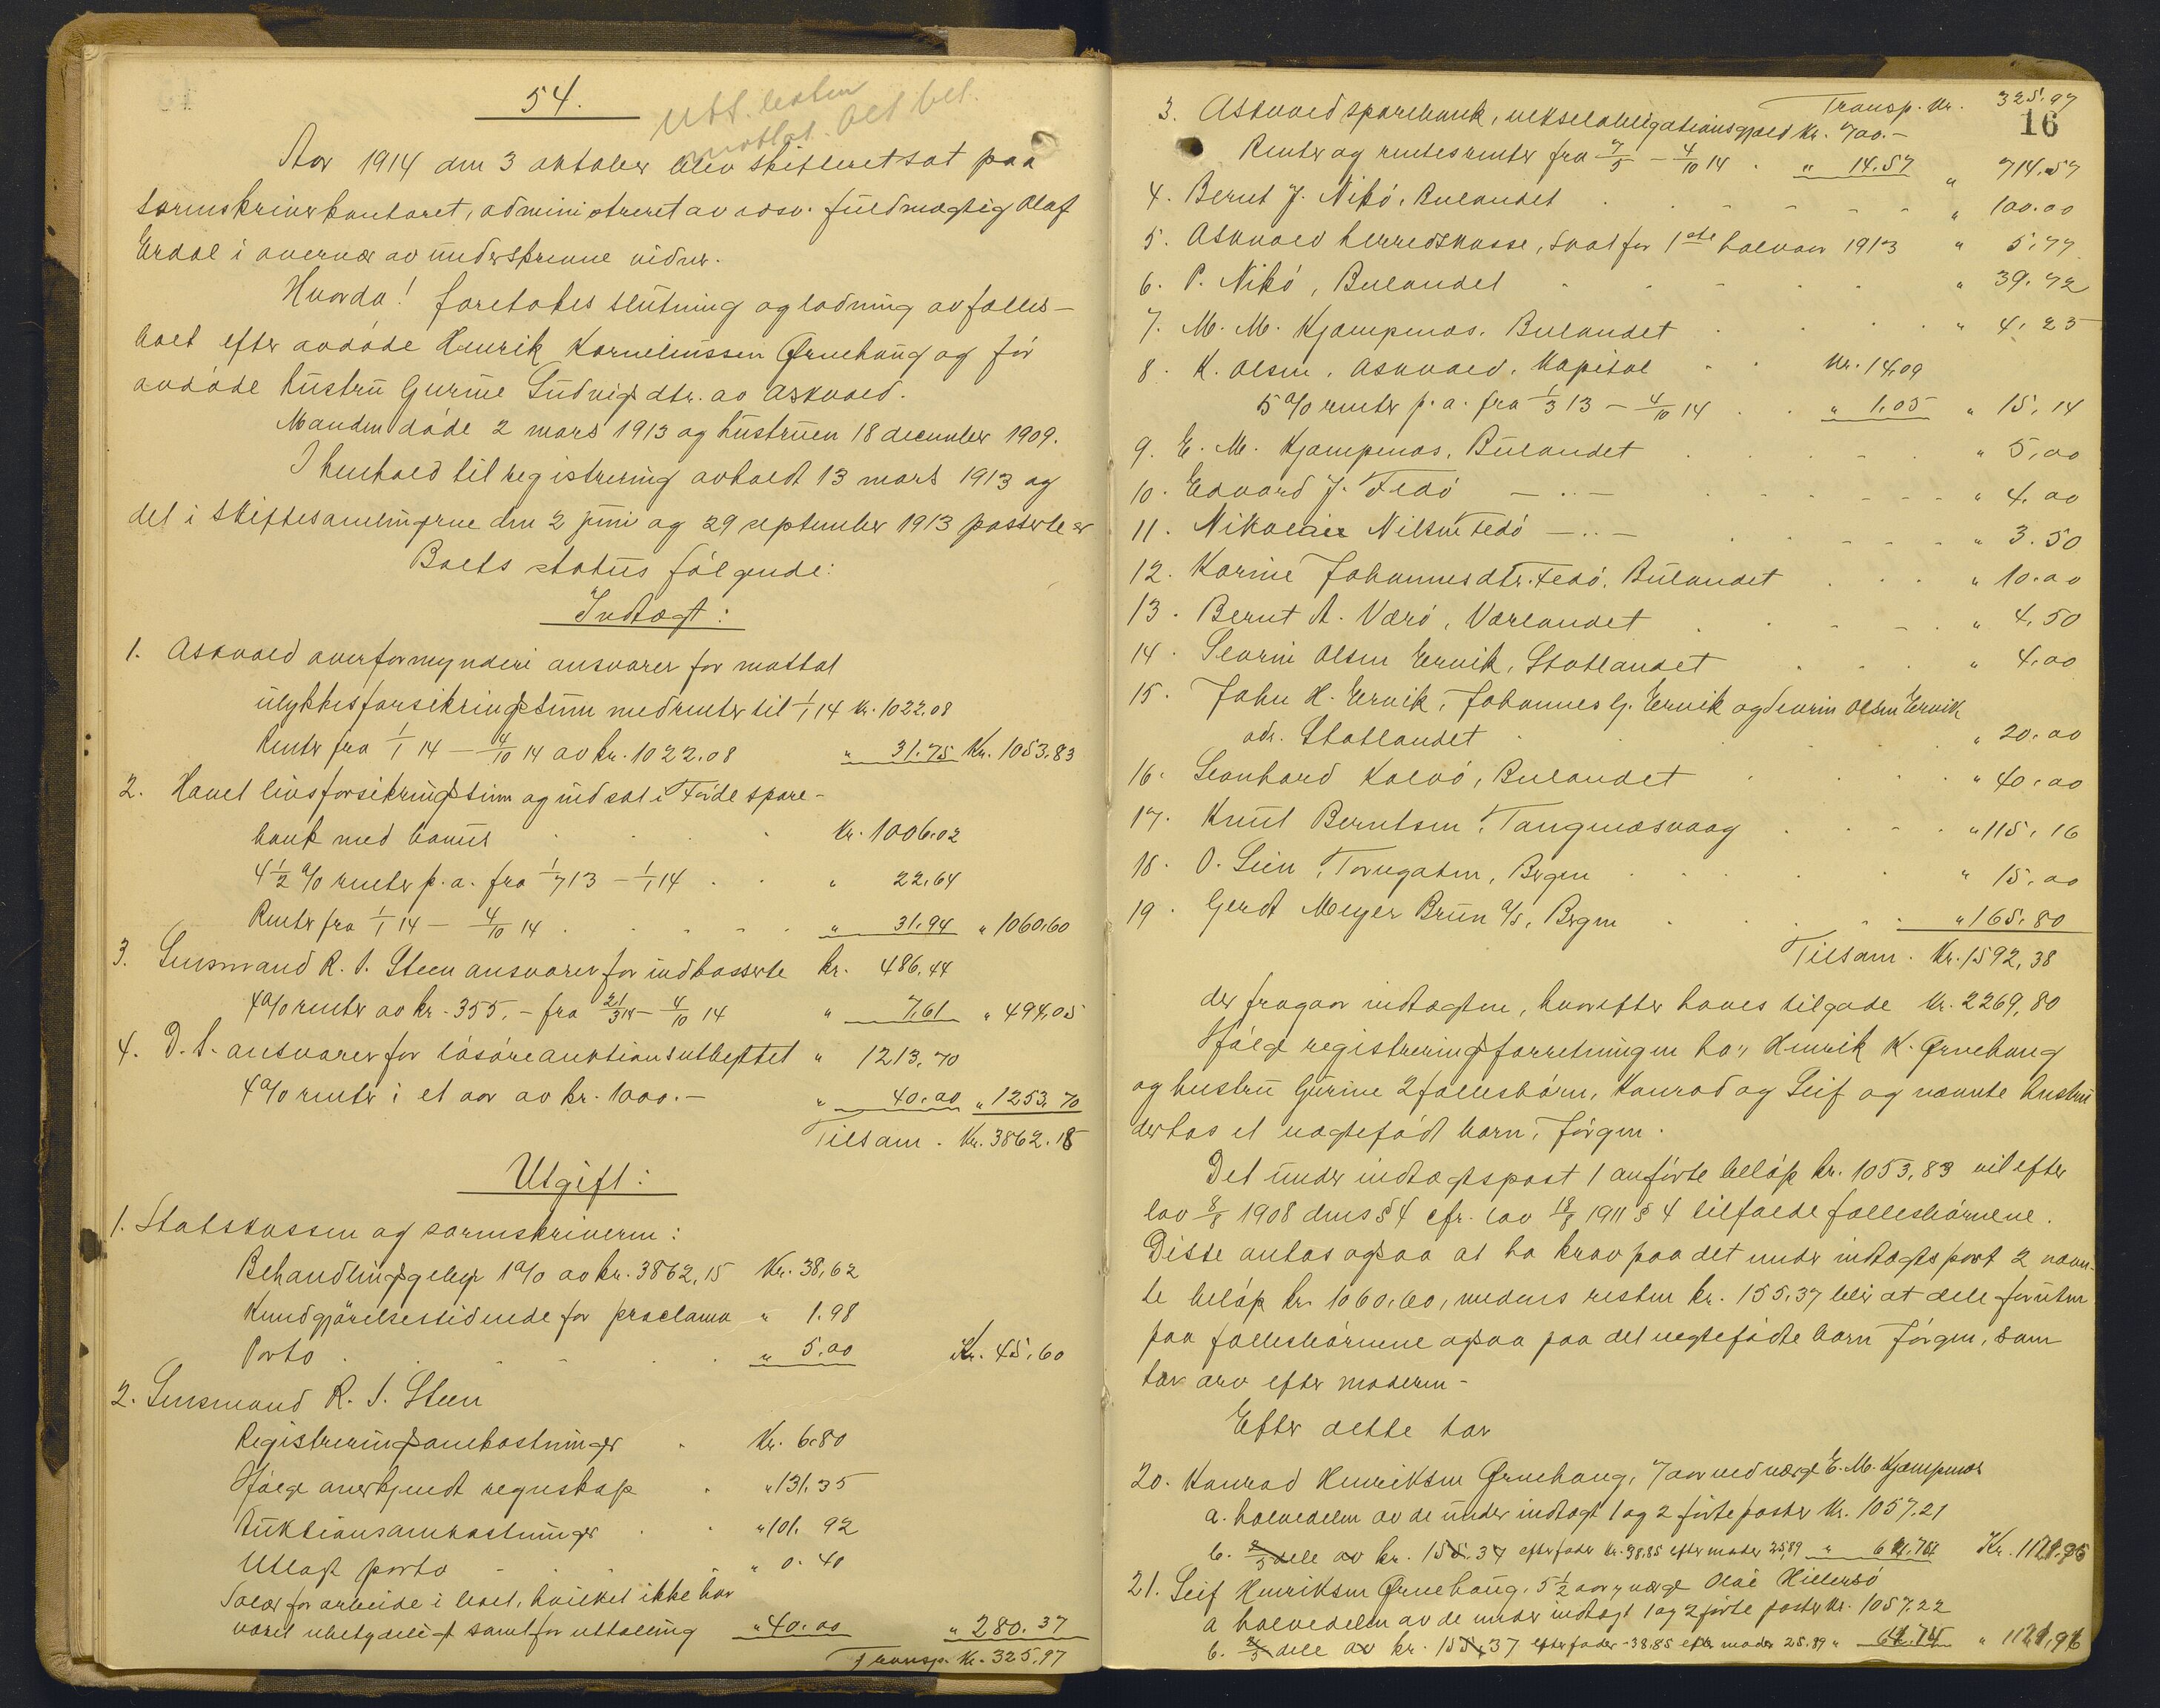 54.
Utt. lesten
mottat. Alt bet.
Aar 1914 den 3 oktober blev skifteret sat paa
sorenskriverkontoret, administreret av edsv. fuldmægtig Olaf
Erdal i overvær av underskrevne vidner.
Hvorda! foretokes slutning og lodning av fælles-
boet efter avdøde Henrik Korneliussen Ørnehaug og før
avdøde hustru Gurine Ludvigsdtr. av Askvold.
Manden døde 2 mars 1913 og hustruen 18 december 1909.
I henhold til registrering avholdt 13 mars 1913 og
det i skiftesamlingerne den 2 juni og 29 september 1913 passerte er
Boets status følgende:
Indtægt:
1. Askvold overformynderi ansvarer for mottat
ulykkesforsikringssum med renter til 1/1 14 kr. 1022.08
Renter fra 1/1 14 - 4/10 14 av kr. 1022.08 " 31.75 Kr. 1053.83
2. Hævet livsforsikringssum og indsat i Førde spare-
bank med bonus Kr. 1006.02
4 1/2 % renter p. a. fra 1/7 13 - 1/1 14 . . " 22.64
Renter fra 1/1 14 - 4/10 14 . . . . " 31.94 " 1060.60
3. Lensmand R. S. Steen ansvarer for indkasserte kr. 486.44
4% renter av kr. 355.- fra 21/3 14 - 4/10 14 " 7.61 " 494.05
4. D. S. ansvarer for løsøreauktionsutbyttet " 1213.70
4% renter i et aar av kr. 1000.- " 40.00 " 1253.70
Tilsam. Kr. 3862.18
Utgift:
1. Statskassen og sorenskriveren:
Behandlingsgebyr 1% av kr. 3862,15 Kr. 38,62
Kundgjørelsestidende for proclama " 1.98
Porto . . . . " 5.00 Kr. 45.60
2. Lensmand R. S. Steen
Registreringsomkostninger . Kr. 6.80
Ifølge anerkjendt regnskap . " 131.35
Auktionsomkostninger . . " 101.92
Utlagt porto - - " 0.40
Salær for arbeide i boet, hvilket ikke har
været ubetydeligt samt for uttælling " 40.00 " 280.37
Transp. Kr. 325.97
Transp. kr. 325.97
16
3. Askvold sparebank, vekselobligationsgjæld Kr. 700.-
Renter og rentesrenter fra 7/5 - 4/10 14 . " 14.57 " 714.57
4. Bernt J. Nikø, Bulandet . . . . " 100.00
5. Askvold herredskasse, skat for 1ste halvaar 1913 " 5.77
6. P. Nikø, Bulandet . . . . " 39.72
7. M. M. Kjæmpenes. Bulandet . . . . " 4.25
8. K. Olsen, Askvold. Kapital . . Kr. 14,09
5% renter p. a. fra 1/3 13 - 4/10 14 . . " 1.05 " 15.14
9. E. M. Kjæmpenes, Bulandet . . . . " 5,00
10. Edvard J. Fedø - " - . . . . " 4.00
11. Nikolai Nilsen Fedø - " - . . . . " 3.50
12. Karine Johannesdtr. Fedø, Bulandet . . . " 10.00
13. Bernt A. Værø, Værlandet . . . . " 4.50
14. Severin Olsen Ervik, Statlandet . . . " 4.00
15. John H. Ervik, Johannes G. Ervik og Severin Olsen Ervik
adr. Statlandet . . . . " 20.00
16. Leonhard Kalvø, Bulandet . . . . " 40.00
17. Knut Berntsen, Tangenesvaag . . . . " 115.16
18. O. Lein, Torvgaten, Bergen . . . . " 15.00
19. Gerdt Meyer Bruun A/S, Bergen . . . . " 165.80
Tilsam. Kr. 1592,38
der fragaar indtægten, hvorefter haves tilgode kr. 2269,80
Ifølge registreringsforretningen har Henrik K. Ørnehaug
og hustru Gurine 2 fællesbørn, Konrad og Leif og nævnte hustru
derhos et uegtefødt barn, Jørgen.
Det under indtægtspost 1 anførte beløp kr. 1053,83 vil efter
lov 8/8 1908 dens § 4 cfr. lov 18/8 1911 § 4 tilfalde fællesbørnene.
Disse antas ogsaa at ha krav paa det under indtægtspost 2 nævn-
te beløp kr. 1060,60, medens resten kr. 155.37 blir at dele foruten
paa fællesbørnene ogsaa paa det uegtefødte barn Jørgen, som
tar arv efter moderen-
Efter dette har
20. Konrad Henriksen Ørnehaug, 7 aar ved værge E. M. Kjæmpenes
a. halvedelen av de under indtægt 1 og 2 førte poster Kr. 1057.21
b. 2/5 dele av kr. 155.37 efter fader kr. 38.85 efter moder 25,89 " 64.74 Kr. 1121.95
21. Leif Henriksen Ørnehaug, 5 1/2 aar, værge Olai Hillersø
a halvedelen av de under indtægt 1 og 2 førte poster kr. 1057.22
b. 2/5 dele av kr. 155.37 efter fader - 38.85 efter moder 25.89 " 64.74 " 1121,96